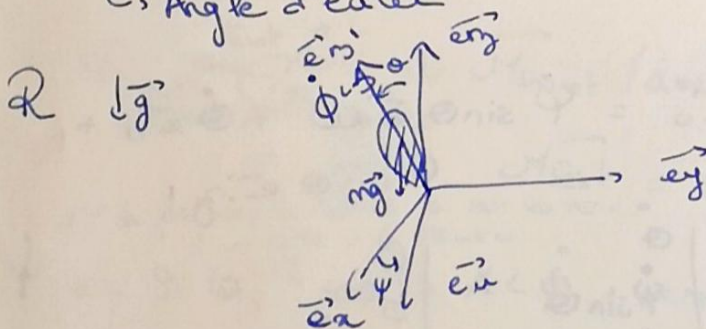 ↳ Angle d'euler
R ↓g⃗
e⃗z' θ e⃗z
φ̇
mg⃗
e⃗y
ψ
e⃗x e⃗u